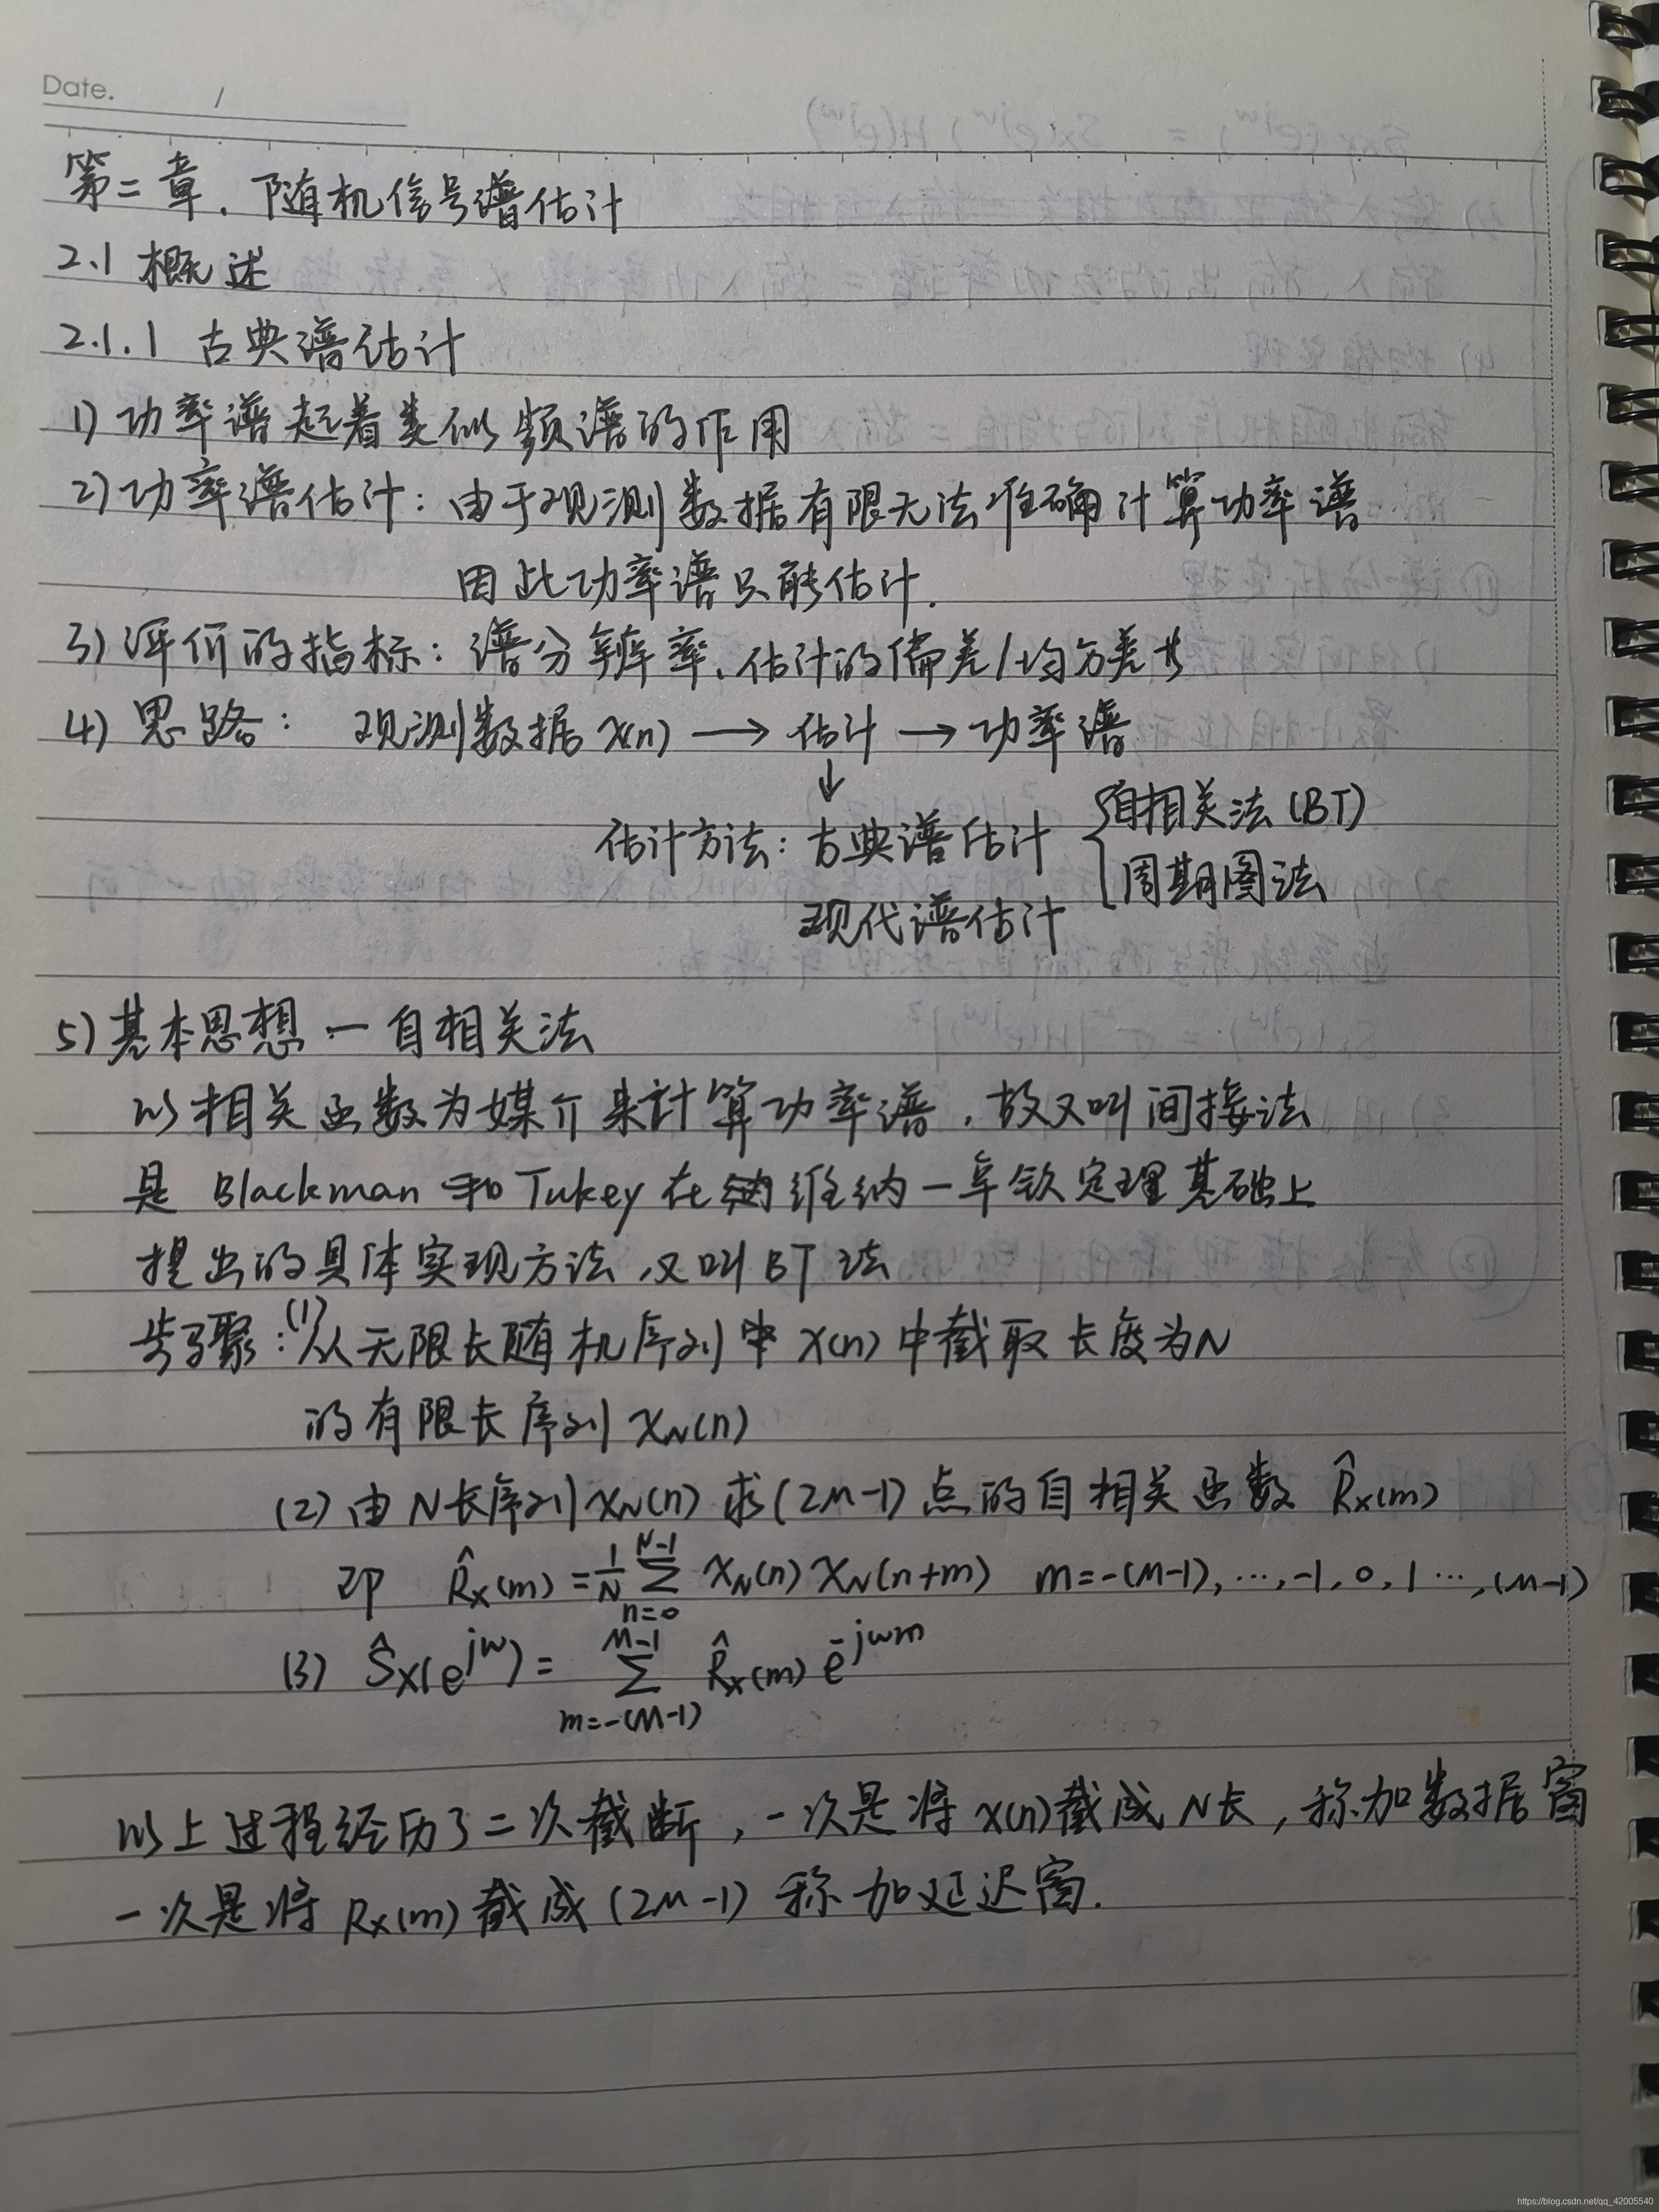 Date. /
第二章. 随机信号谱估计
2.1 概述
2.1.1 古典谱估计
1) 功率谱起着类似频谱的作用
2) 功率谱估计: 由于观测数据有限无法准确计算功率谱
因此功率谱只能估计.
3) 评价的指标: 谱分辨率、估计的偏差/均方差
4) 思路: 观测数据 x(n) → 估计 → 功率谱
↓
估计方法: 古典谱估计 { 自相关法 (BT)
周期图法
现代谱估计
5) 基本思想 — 自相关法
以相关函数为媒介来计算功率谱, 故又叫间接法
是 Blackman 和 Tukey 在维纳-辛钦定理基础上
提出的具体实现方法, 又叫BT法
步骤: (1) 从无限长随机序列中 x(n) 中截取长度为N
的有限长序列 x_N(n)
(2) 由N长序列 x_N(n) 求 (2M-1) 点的自相关函数 R̂x(m)
即 R̂x(m) = 1/N ∑_{n=0}^{N-1} x_N(n) x_N(n+m) m=-(M-1), …, -1, 0, 1 …, (M-1)
(3) Ŝx(e^{jω}) = ∑_{m=-(M-1)}^{M-1} R̂x(m) e^{-jωm}
以上过程经历了二次截断, 一次是将x(n)截成N长, 称加数据窗
一次是将 Rx(m) 截成 (2M-1) 称加延迟窗.
https://blog.csdn.net/qq_42005540